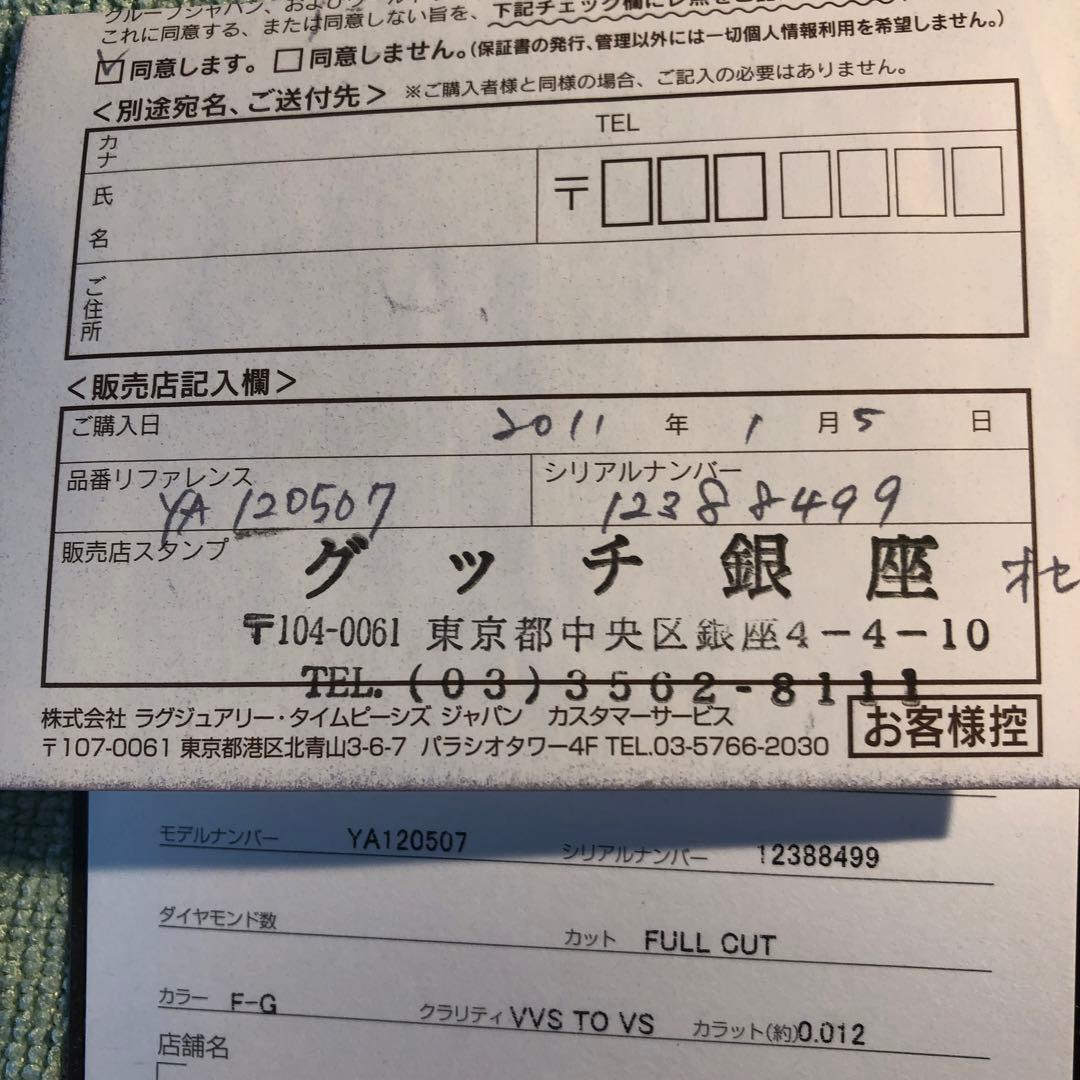 これに同意する、または同意しない旨を、下記チェック欄に
☑同意します。□同意しません。(保証書の発行、管理以外には一切個人情報利用を希望しません。)
<別途宛名、ご送付先> ※ご購入者様と同様の場合、ご記入の必要はありません。
カナ TEL
氏名 〒
ご住所
<販売店記入欄>
ご購入日 2011 年 1 月 5 日
品番リファレンス シリアルナンバー
YA120507 12388499
販売店スタンプ グッチ銀座 オセ
〒104-0061 東京都中央区銀座4-4-10
TEL.(03)3562-8111
株式会社 ラグジュアリー・タイムピーシズ ジャパン カスタマーサービス
〒107-0061 東京都港区北青山3-6-7 パラシオタワー4F TEL.03-5766-2030
お客様控
モデルナンバー YA120507 シリアルナンバー 12388499
ダイヤモンド数 カット FULL CUT
カラー F-G クラリティ VVS TO VS カラット(約)0.012
店舗名